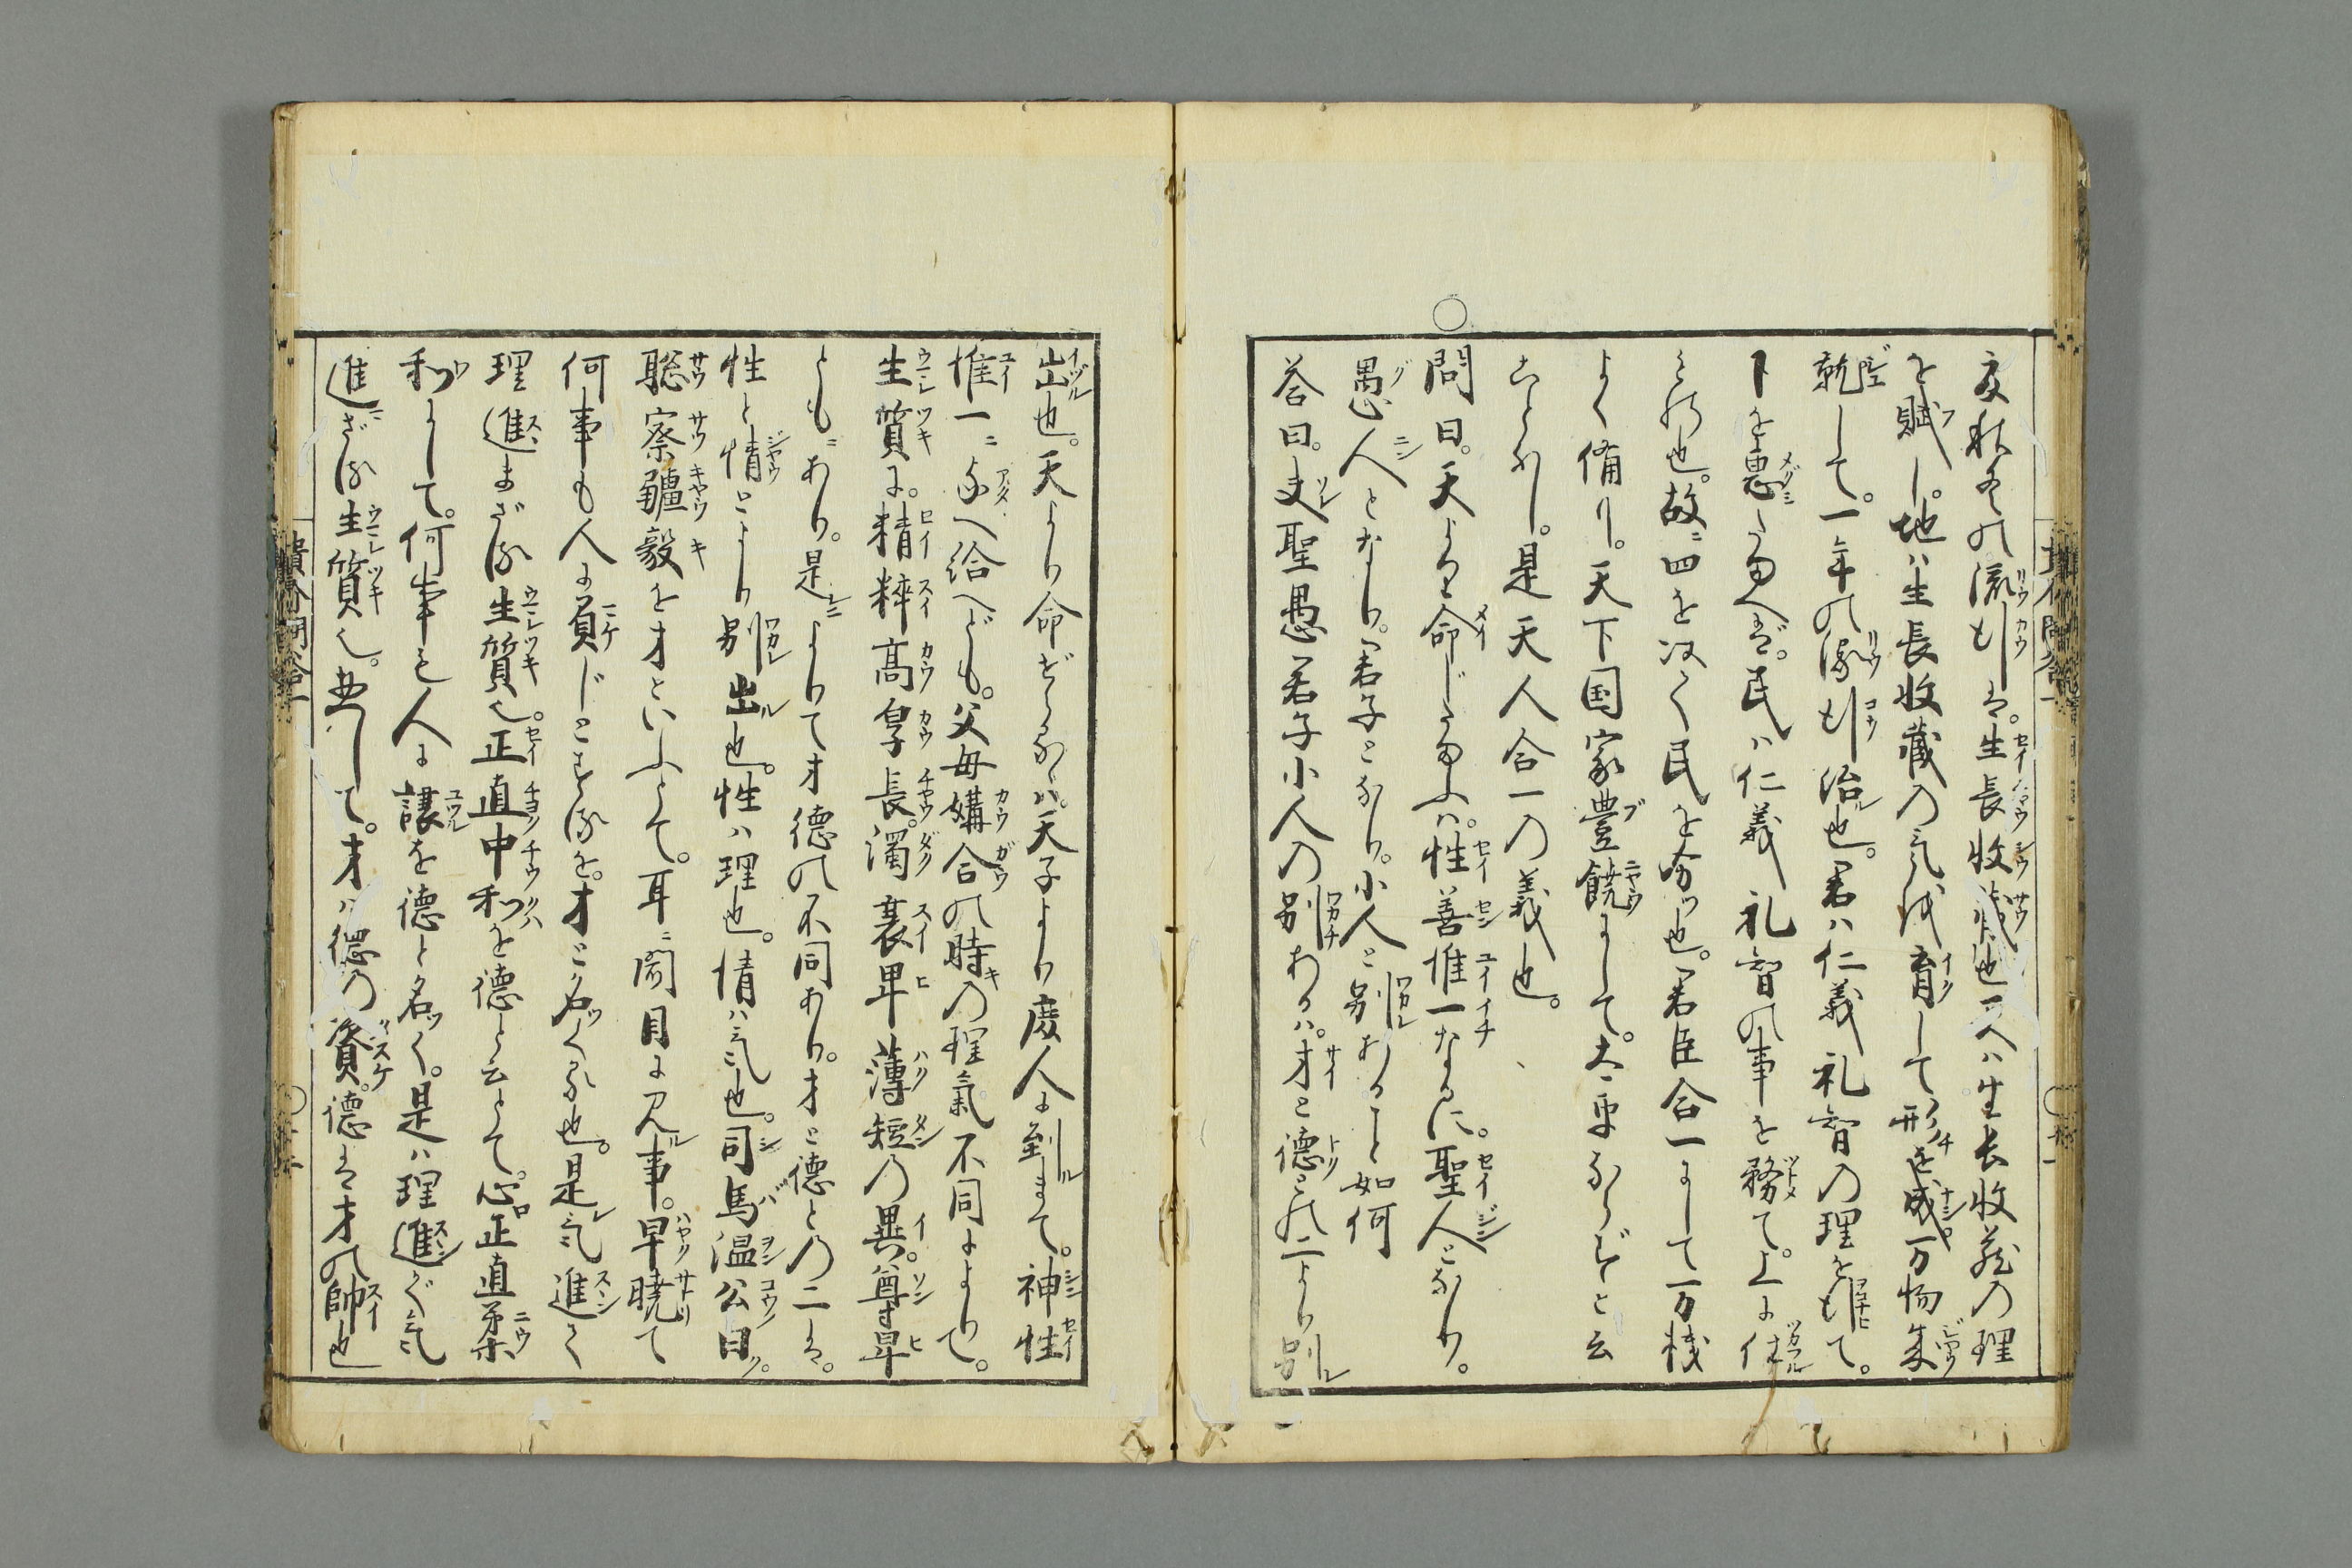 夏秋冬の流行は。生長收藏也。天ハ生長收藏の理
を賦し。地ハ生長收藏の気を育して形を成。万物集
就して。一年の流行治也。君ハ仁義礼智の理を以て。
下を恵たまへば。民ハ仁義礼智の事を務て。上に仕
る也。故ニ四を以て民を分つ也。君臣合一にして万機
よく備り。天下国家豊饒にして。太平ならずと云
ことなし。是天人合一の義也。
○問曰。天より命じたまふハ。性善惟一なるに。聖人となり。
愚人となり。君子となり。小人と別あること如何
答曰。夫聖愚君子小人の別あるハ。才と德との二より別レ
出ル也。天より命ぜらるハ。天子より庶人に到まで。神性
惟一ニ与へ給へども。父母媾合の時の理氣不同によりて。
生質に。精粹高厚長。濁衰卑薄短の異。尊卑
ともニあり。是によりて才德の不同あり。才と德との二は。
性と情とより別出ル也。性ハ理也。情ハ気也。司馬温公曰。
聡察彊毅を才といふとて。耳ニ聞目に見ル事。早曉て
何事も人に負じとするを。才と名くる也。是レ気進て
理進まざる生質也。正直中和を德と云とて。心正直柔
和にして。何事も人に譲を德と名く。是ハ理進で気
進ざる生質也。並して。才ハ德の資。德は才の帥也